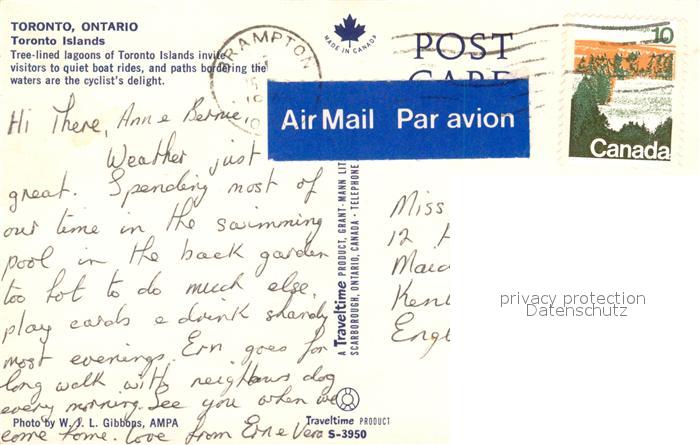 TORONTO, ONTARIO
Toronto Islands
Tree-lined lagoons of Toronto Islands invite
visitors to quiet boat rides, and paths bordering the
waters are the cyclist's delight.
BRAMPTON
MADE IN CANADA
POST
CARD
10
Canada
Air Mail Par avion
Hi There, Ann e Bernie,
Weather just
great. Spending most of
our time in the swimming
pool in the back garden
too hot to do much else,
play cards e drink shandy
most evenings. Ern goes for
long walk with neighbours dog
every morning. See you when we
come home. Love from Ern e Vera
Photo by W. J. L. Gibbons, AMPA
A Traveltime PRODUCT, GRANT-MANN LIT
SCARBOROUGH, ONTARIO, CANADA - TELEPHONE
Traveltime PRODUCT
S-3950
Miss
12
Maid
Ken
Engl
privacy protection
Datenschutz